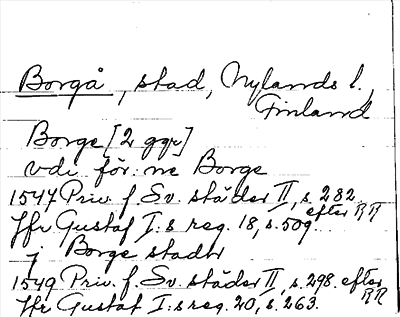 Borgå, stad, Nylands l.,
Finland
Borge [2 ggr]
vdi för: ne Borge
1547 Priv. f. Sv. städer II, s. 282.
efter RR
Jfr Gustaf I:s reg. 18, s. 509.
j Borge stadh
1549 Priv. f. Sv. städer II, s. 298. efter
RR
Jfr Gustaf I:s reg. 20, s. 263.